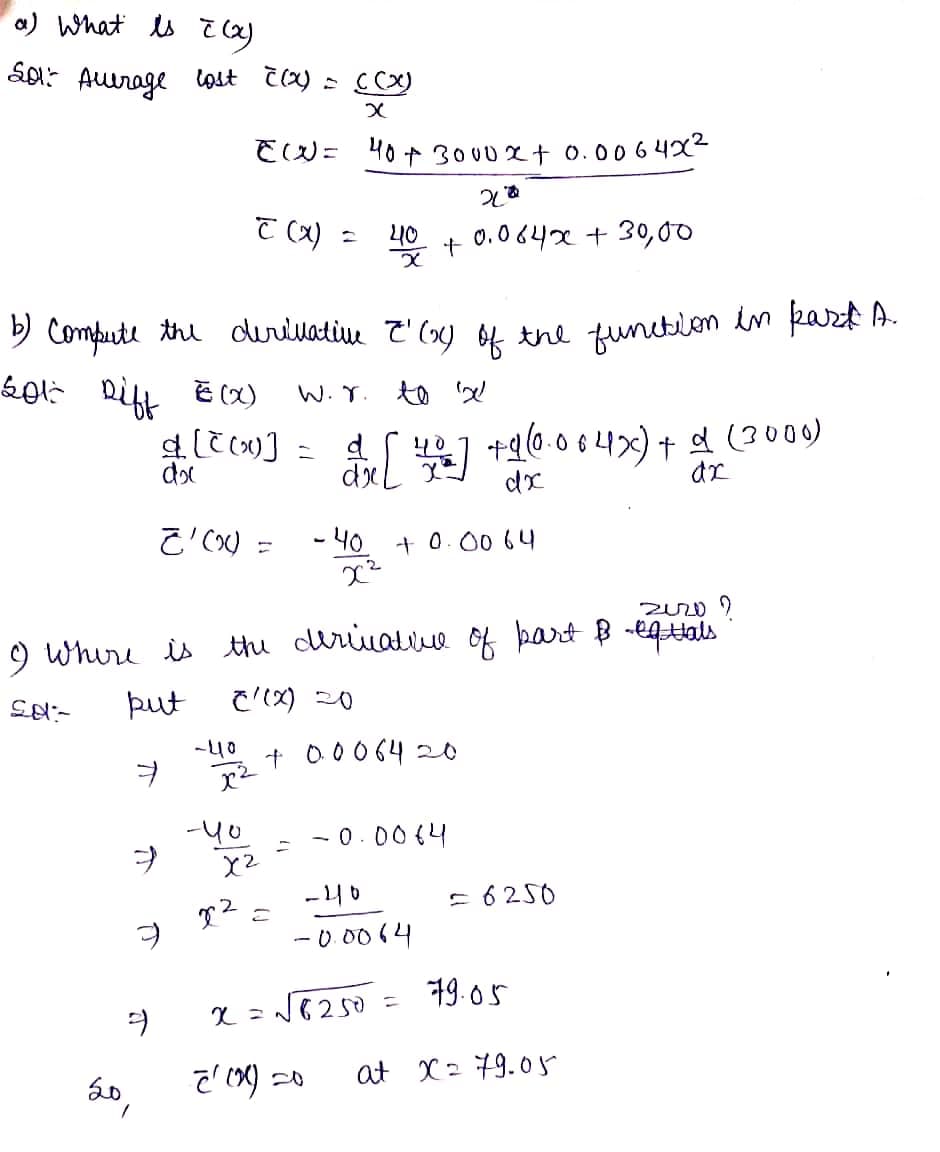 a) What is c̄(x)
Sol:- Average cost c̄(x) = C(x)/x
c̄(x) = 40 + 3000x + 0.0064x²/x
c̄(x) = 40/x + 0.064x + 30,00
b) Compute the derivative c̄'(x) of the function in part A.
Sol:- Diff c̄(x) w.r. to 'x'
d/dx [c̄(x)] = d/dx [40/x] + d/dx (0.0064x) + d/dx (3000)
c̄'(x) = -40/x² + 0.0064
c) Where is the derivative of part B equals zero?
Sol:- put c̄'(x) = 0
⇒ -40/x² + 0.0064 = 0
⇒ -40/x² = -0.0064
⇒ x² = -40/-0.0064 = 6250
⇒ x = √6250 = 79.05
So, c̄'(x) = 0 at x = 79.05